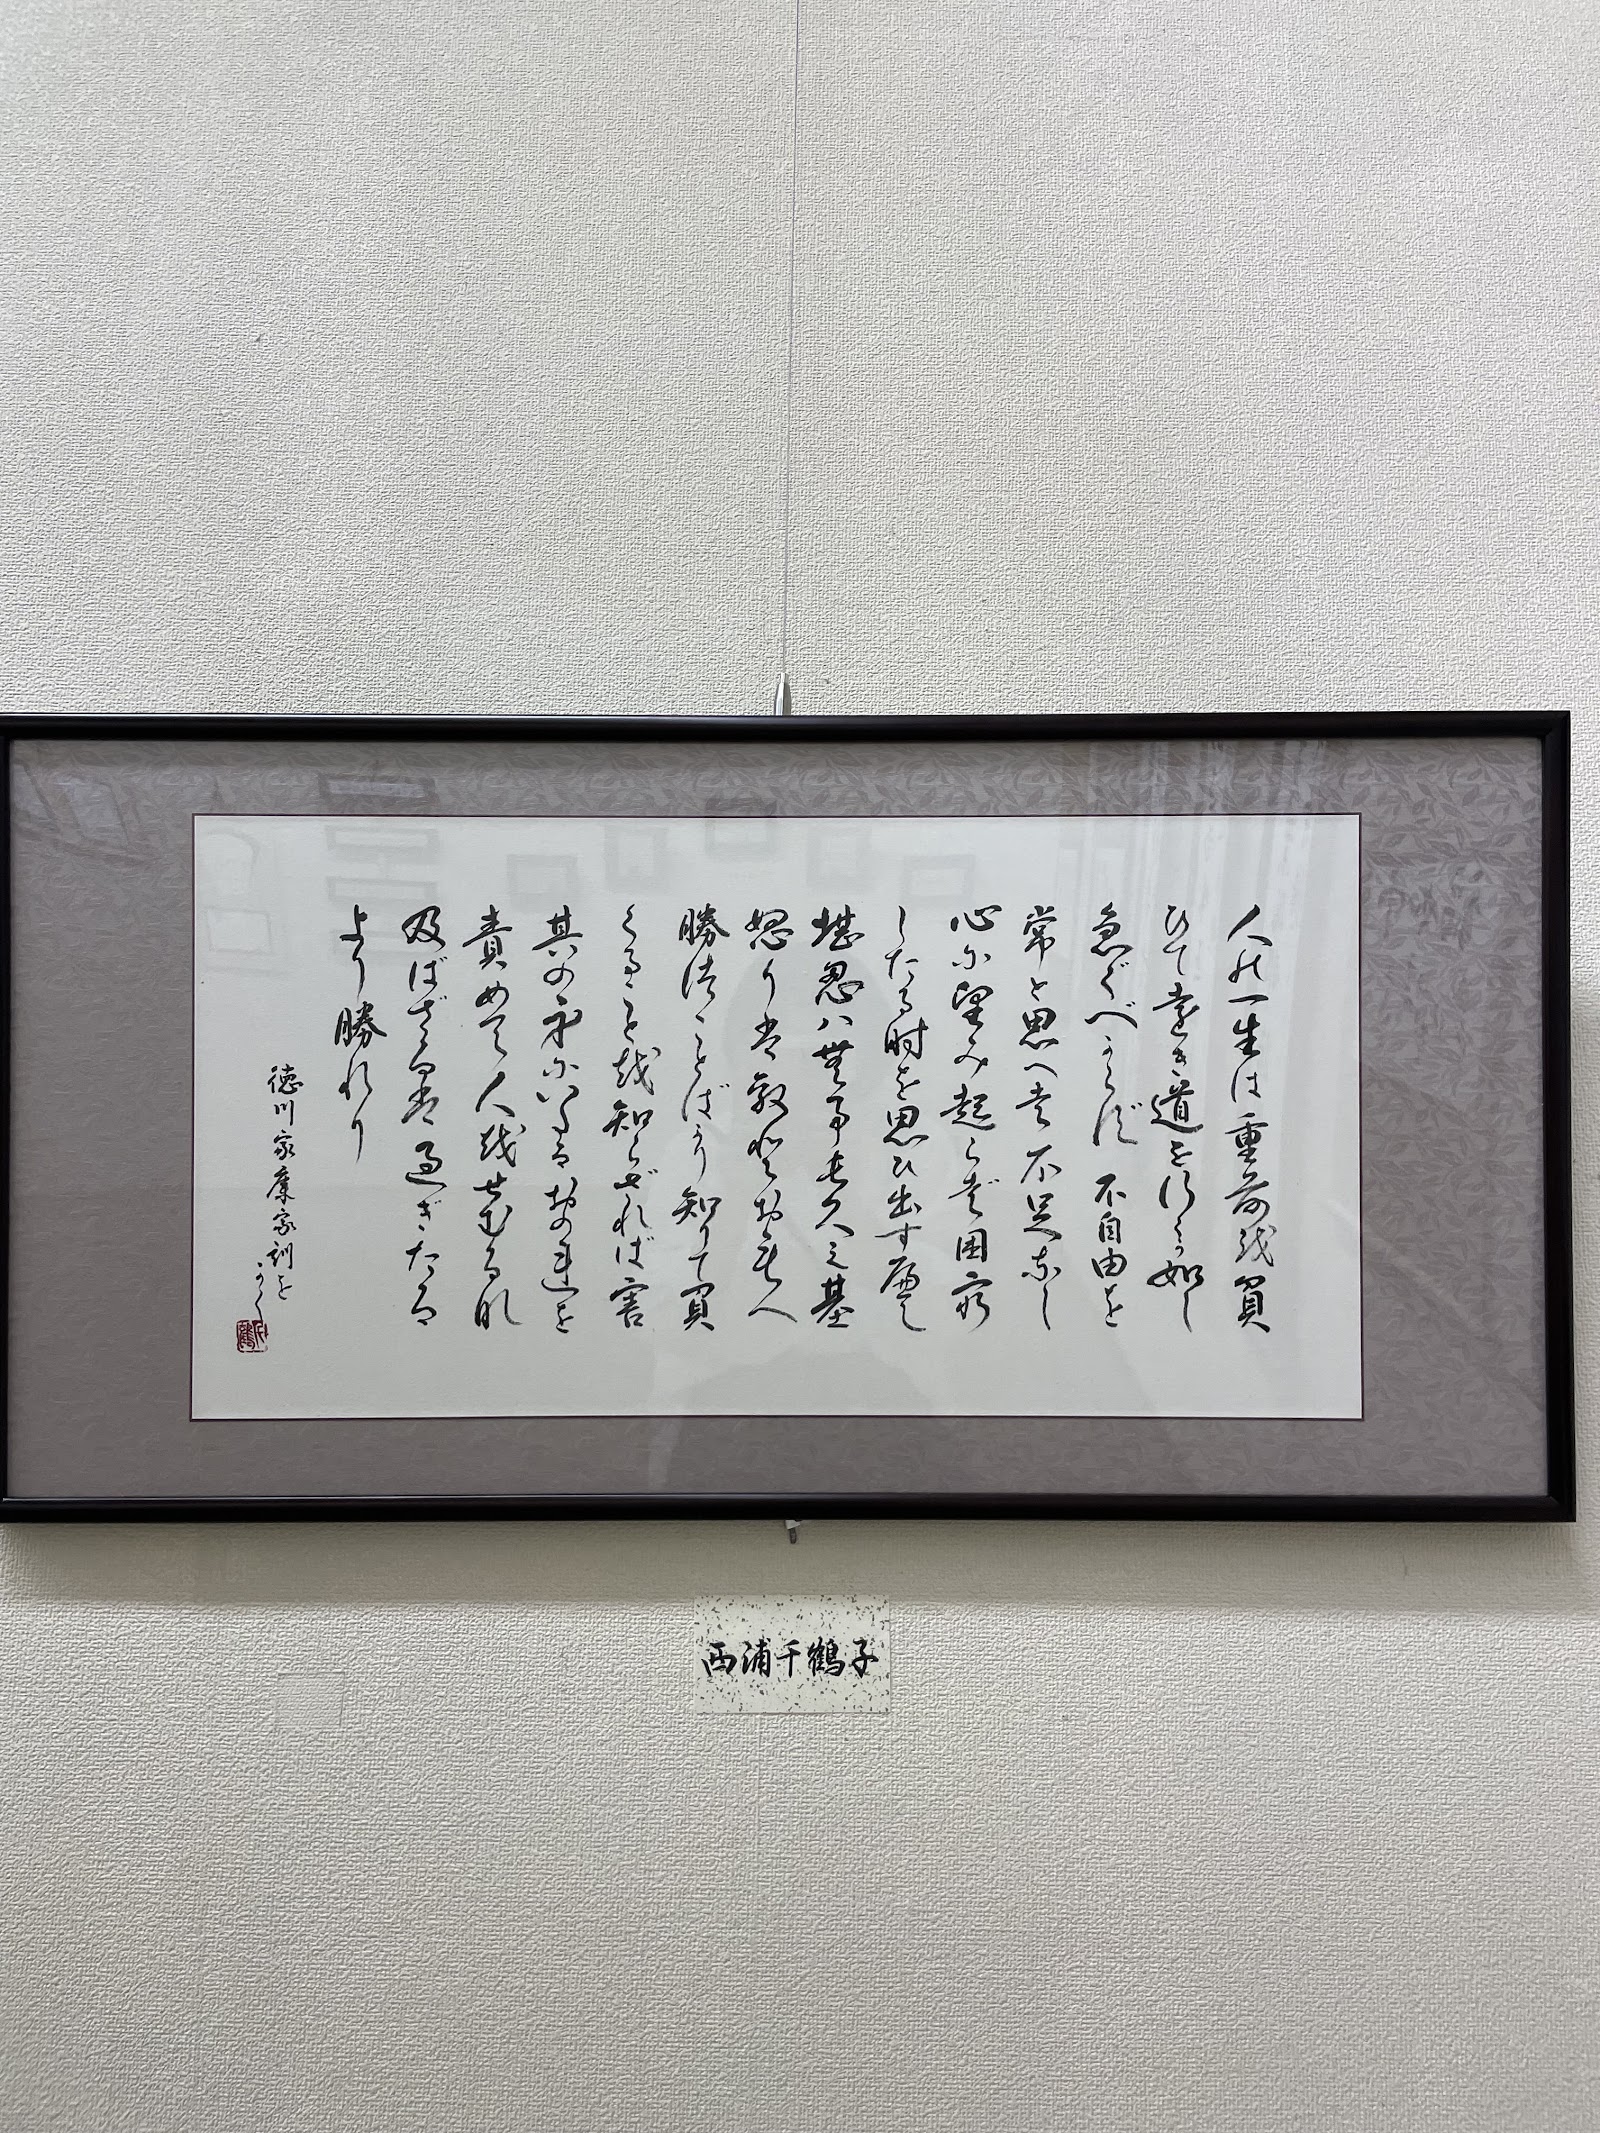 人の一生は重荷を負
ひて遠き道を行くが如し
急ぐべからず不自由を
常と思へば不足なし
心に望み起らば困窮
したる時を思ひ出すべし
堪忍ハ無事長久之基
怒りは敵と於もへ
勝つことばかり知りて負
くることを知らざれば害
其の身にいたるおのれを
責めて人をせむるな
及ばざるは過ぎたる
より勝れり
徳川家康家訓を
かく
西浦千鶴子